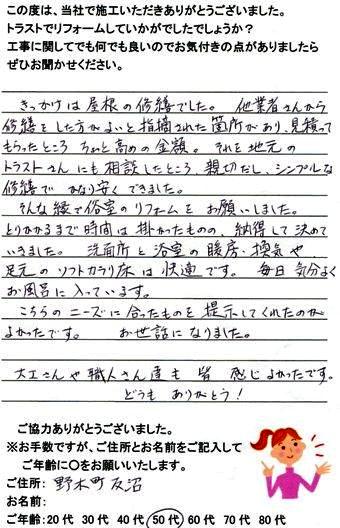 この度は、当社で施工いただきありがとうございました。
トラストでリフォームしていかがでしたでしょうか？
工事に関してでも何でも良いのでお気付きの点がありましたら
ぜひお聞かせください。
きっかけは屋根の修繕でした。 他業者さんから
修繕をした方がよいと指摘された箇所があり、見積って
もらったところ ちょと高めの金額。 それを地元の
トラストさんにも相談したところ、親切だし、シンプルな
修繕で かなり安くできました。
そんな縁で俗室のリフォームをお願いしました。
とりかかるまで時間は掛かったものの、納得して決めて
いきました。 洗面所と浴室の暖房・換気や
足元のソフトカラリ床は快適です。 毎日気分よく
お風呂に入っています。
こちらのニーズに合ったものを提示してくれたのが
よかったです。 お世話になりました。
大工さんや職人さん達も皆 感じよかったです。
どうもありがとう！
ご協力ありがとうございました。
※お手数ですが、ご住所とお名前をご記入して
ご年齢に○をお願いいたします。
ご住所： 野木町友沼
お名前：
ご年齢：20代 30代 40代 50代 60代 70代 80代